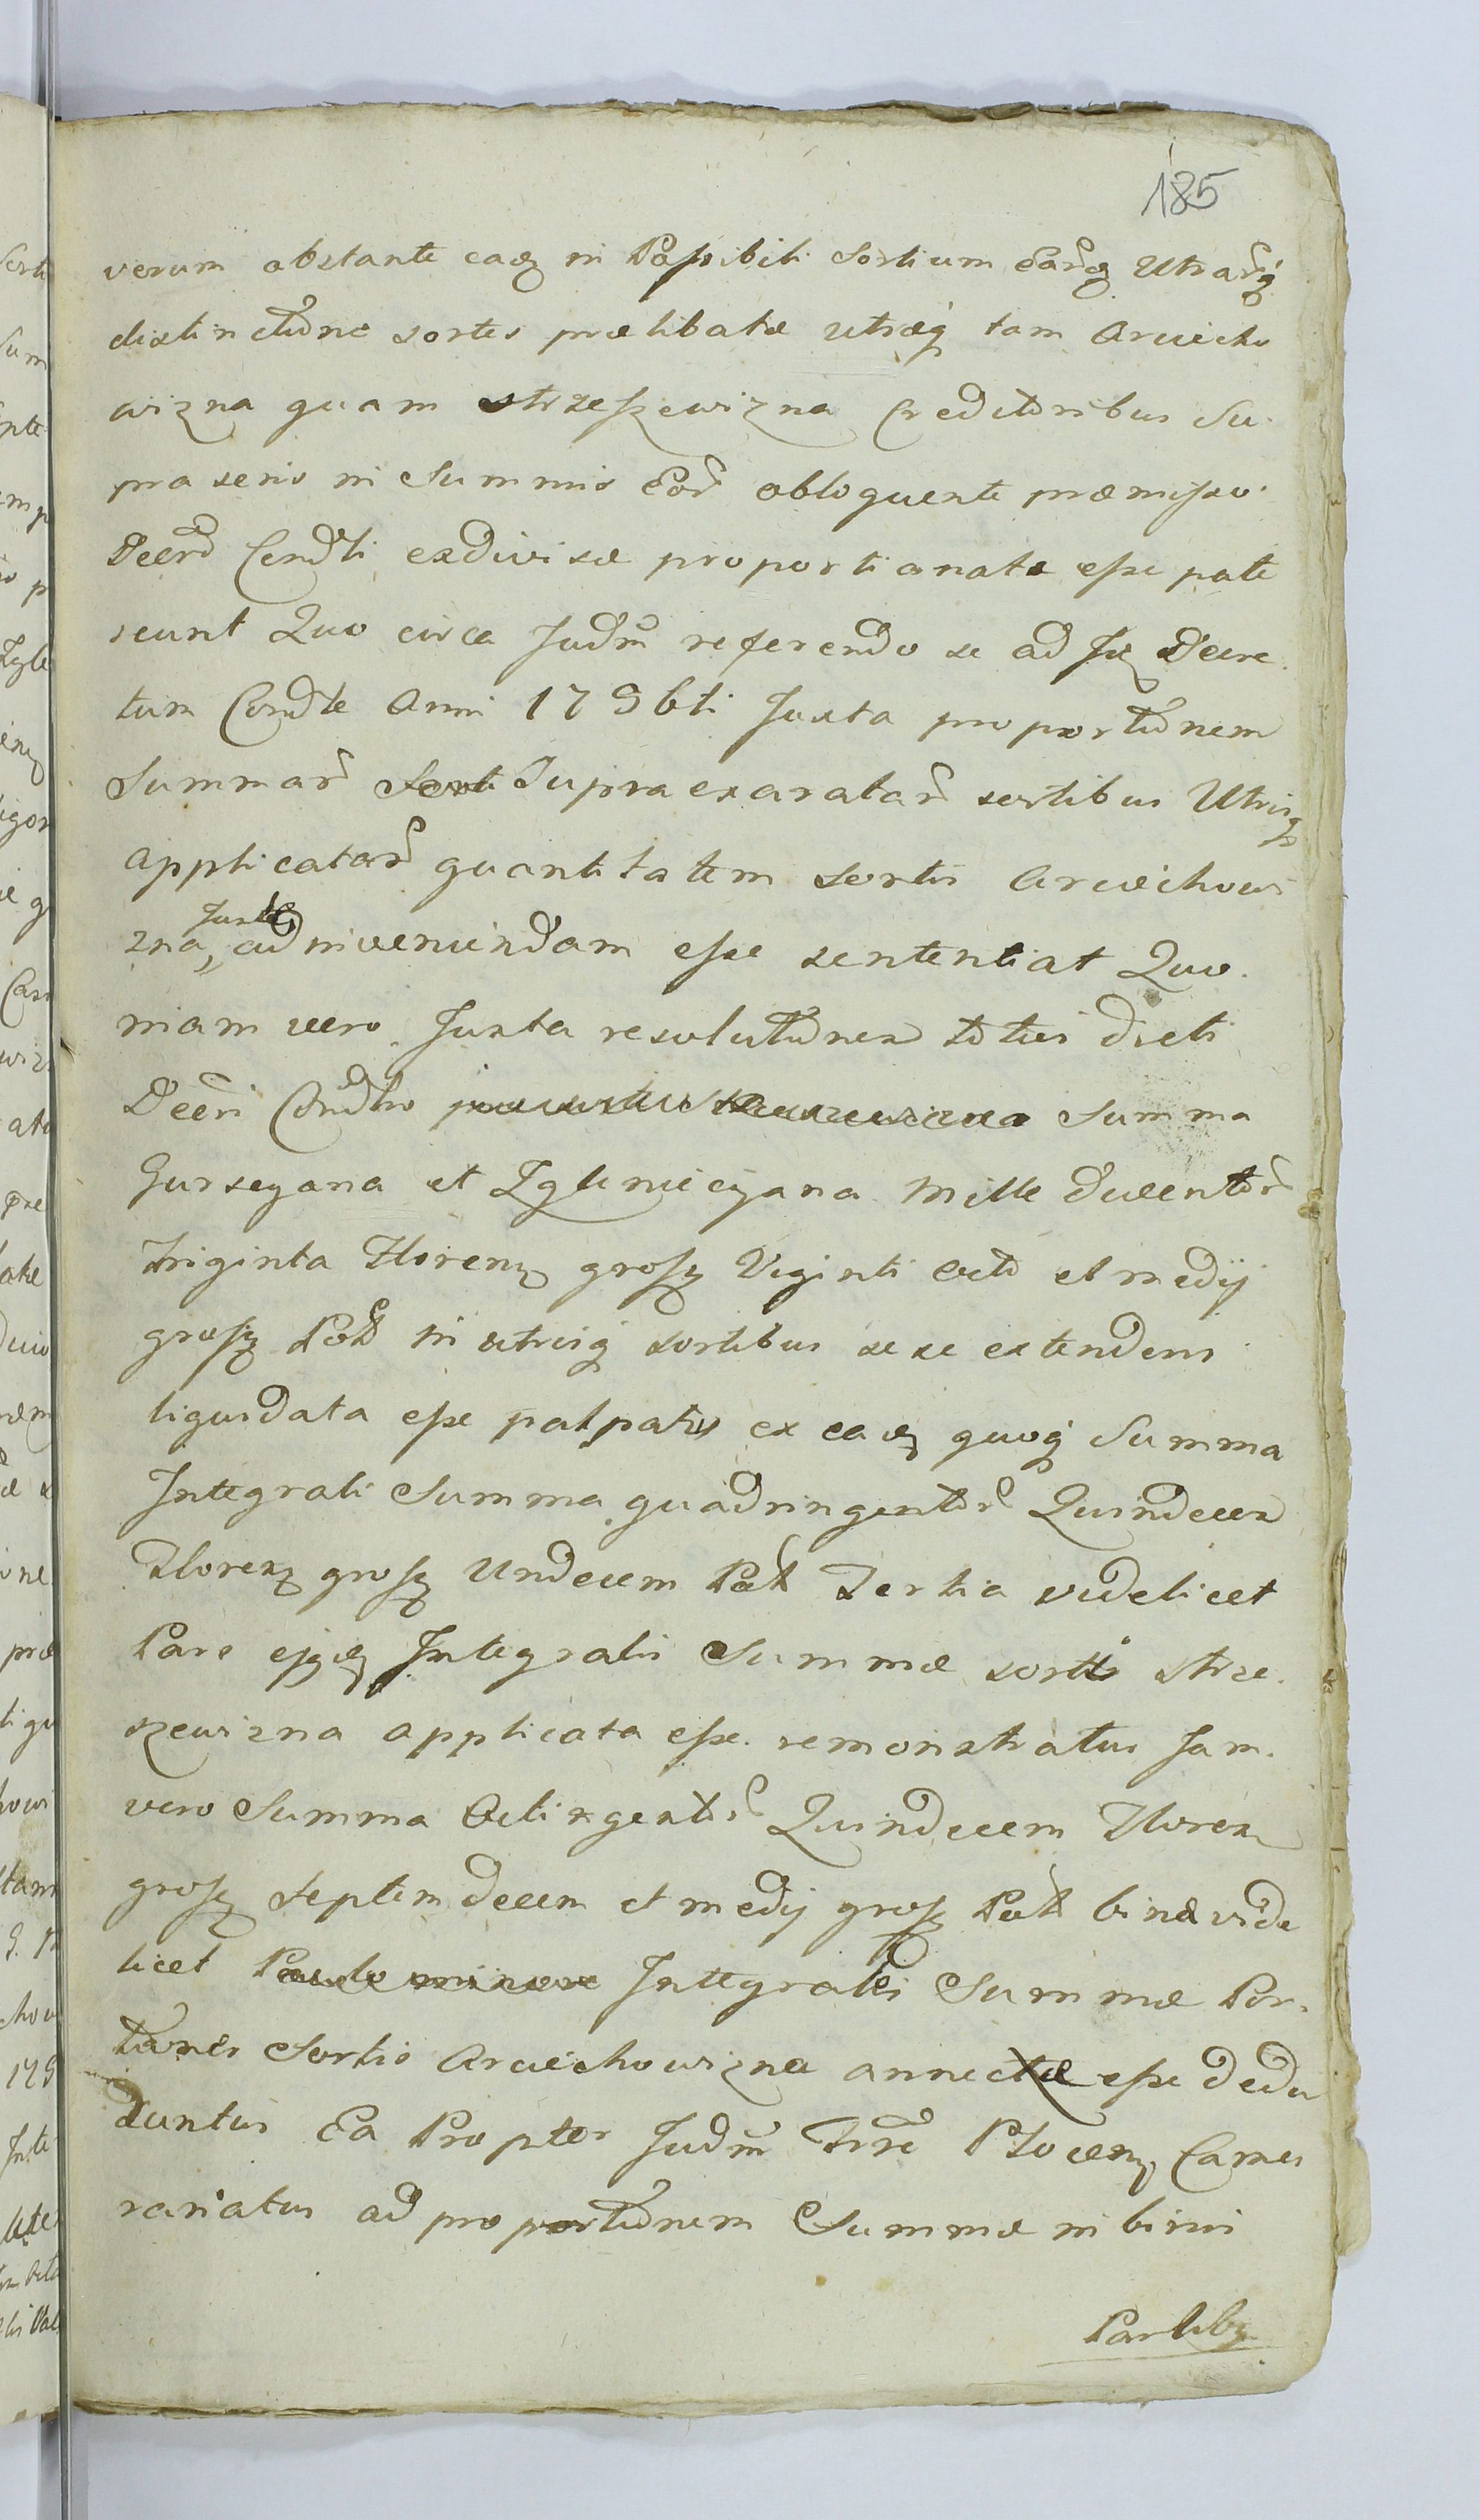 185
verum obstante eadē in Possibili Sortium Earūdē Utrarq̃
distinctione sortes praelibatae utraeq̃ tam Arciecho
wizna quam Strzeszewizna Creditoribus Su
pra seris in Summis Eor̃ obloquente praemisso
Decr̃o Cond̃ti exdivisae proportionatae esse pate
scunt Quo circa Jud̃m referendo se ad Decre
tum Cond̃te Anni 1796ti Juxta proportionem
Summar̃ Sorti Supra exaratar̃ sortibus Utrisq̃
applicatar̃ quantitatem Sortis Arciechowi
zna, Juste ad inveniendam esse sententiat Quo
niam vero Juxta resolutionem toties dicti
Decr̃i Cond̃tis Summa
Gurseyana et Zgliniecijana Mille Ducentor̃
triginta Floren̄ gross̄ Viginti Octo et medij
gross̄ Pol̃ in utrisq̃ sortibus sese extendens
liquidata esse palpatur ex eadē quoq̃ Summa
Integrali Summa quadringentor̃ Quindecem
Floren̄ gross̄ Undecem Pol̃ Tertia videlicet
Pars ejusdē Integralis Summae sorti Strze
szewizna applicata esse remonstratur Jam
vero Summa Octingentor̃ Quindecem Floren̄
gross̄ Septemdecem et medij gross̄ Pol̃ binae vide
licet Integralis Summae Por
tiones Sortis Arciechowizna annectae esse dedu
cuntur Ea Propter Jud̃m Trr̃e Plocen̄ Came
rariatus ad proportionem Summae in binis
Partibȝ